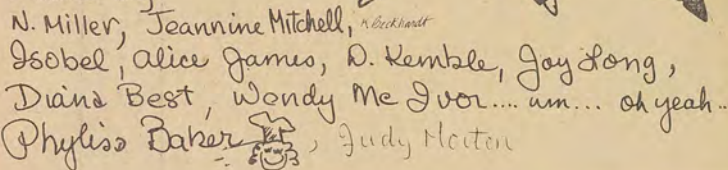 N. Miller, Jeannine Mitchell, K Beckhardt
Isobel, Alice James, D. Kemble, Joy Long,
Diana Best, Wendy Mc Ivor.... um... oh yeah..
Phyliss Baker, Judy Morton